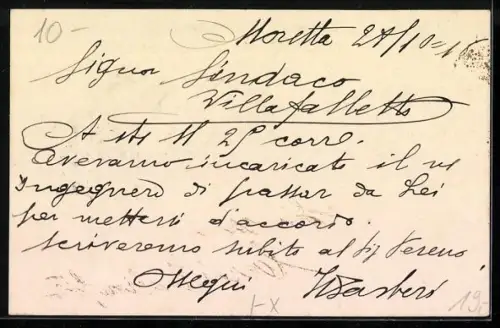 10-
Moretta 27/10=1
Signor Sindaco
Villafalletto
A 25 corr.
avevamo incaricato il ns
Ingegnere di passar da Lei
per mettersi d'accordo.
scriveremo subito al Sig
Ossequi Barberi
-x 19-